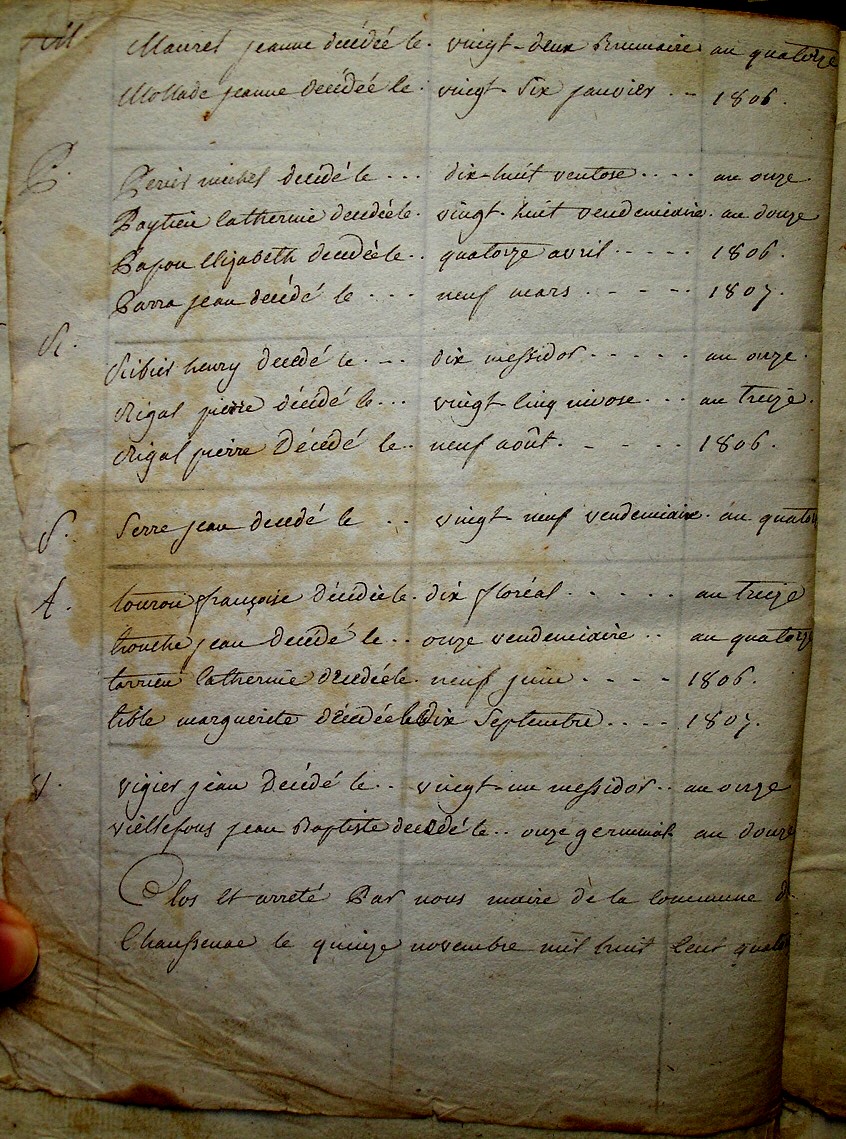 M. Maurel jeanne décédée le. vingt-deux Brumaire an quatorze
Mollade jeanne décédée le. vingt-six janvier . - 1806.
P. michel décédé le ... dix-huit ventose.... an onze.
Catherine décédée le. vingt-huit vendemiaire. an douze
Papon Elizabeth décédée le.. quatorze avril..... 1806.
Parra jean décédé le .... neuf mars ..... 1807.
R. Ribier henry décédé le .-- dix messidor ..... an onze.
Rigal pierre décédé le... vingt cinq nivose... an treize.
Rigal pierre Décédé le.. neuf août. - - - - 1806.
S. Serre jean décédé le .. vingt-neuf vendemiaire. an quator
t. françoise décédée le. dix floréal ...... an treize
trouche jean décédé le.. onze vendemiaire .. an quatorze
tarrieu Catherine décédée le. neuf juin ..... 1806.
tible marguerite décédée le Dix Septembre.... 1807.
v. vigier jean Décédé le.. vingt-un messidor.. an onze
vieillefons jean Baptiste décédé le.. onze germinal. an douze
Clos et arreté Par nous maire de la Commune d
Chaussenac le quinze novembre mil huit Cent quato